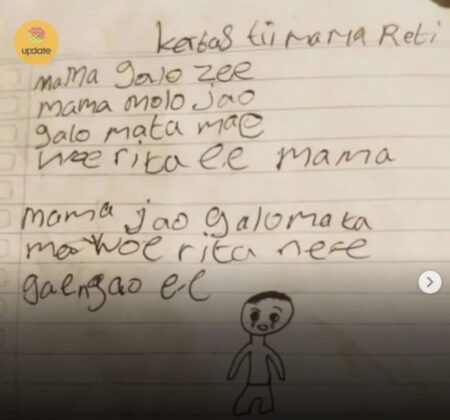 update
kertas tii mama Reti
mama galo zee
mama molo jao
galo mata mae
woe rita ee mama
mama jao galo mata
mae woe rita ne-e
gaengao ee